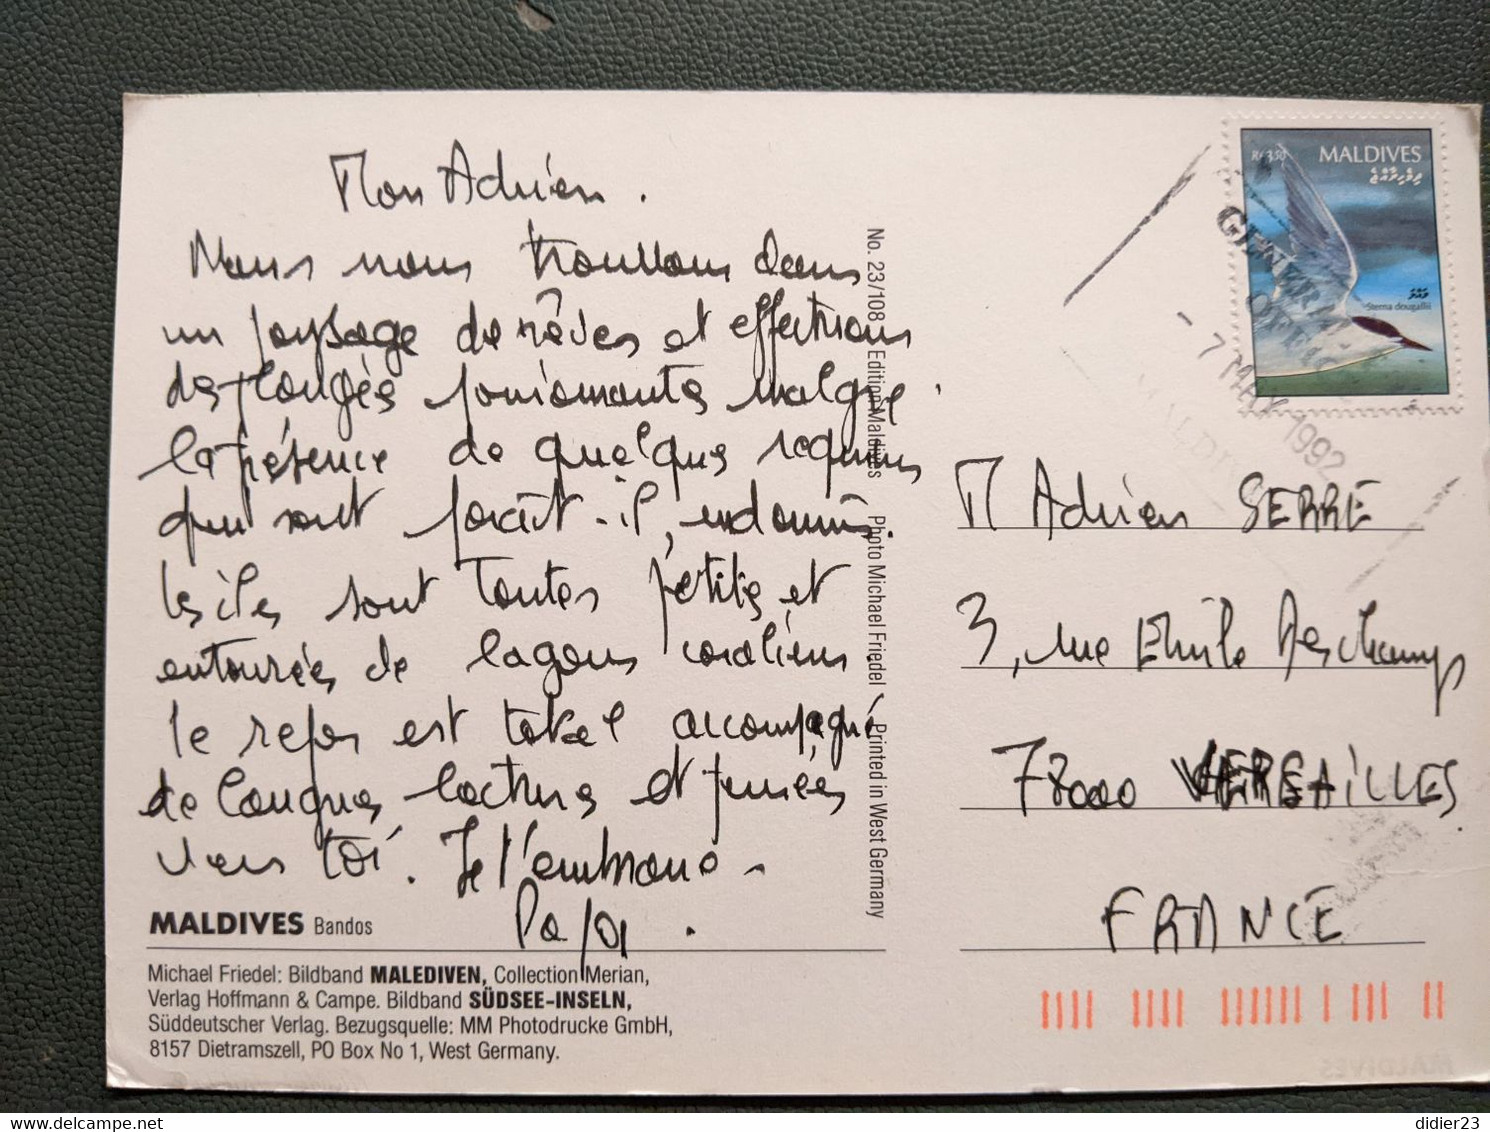 Mon Adrien.
Nous nous trouvons dans
un paysage de rêves et effectuons
des plongées passionnantes malgré
la présence de quelques requins
qui sont paraît-il, endormis.
les îles sont toutes petites et
entourées de lagons coraliens
le repos est total accompagné
de longues lectures et pensées
vers toi. Je t'embrasse.
Papa.
MALDIVES Bandos
Michael Friedel: Bildband MALEDIVEN, Collection Merian,
Verlag Hoffmann & Campe. Bildband SÜDSEE-INSELN,
Süddeutscher Verlag. Bezugsquelle: MM Photodrucke GmbH,
8157 Dietramszell, PO Box No 1, West Germany.
No. 23/108 Edition Maldives Photo Michael Friedel Printed in West Germany
Rf 3.50 MALDIVES
ދިވެހިރާއްޖެ
Sterna dougallii
- 7 MAY 1992
MALDIVES
M Adrien SERRE
3, rue Emile Deschamps
78000 VERSAILLES
FRANCE
didier23